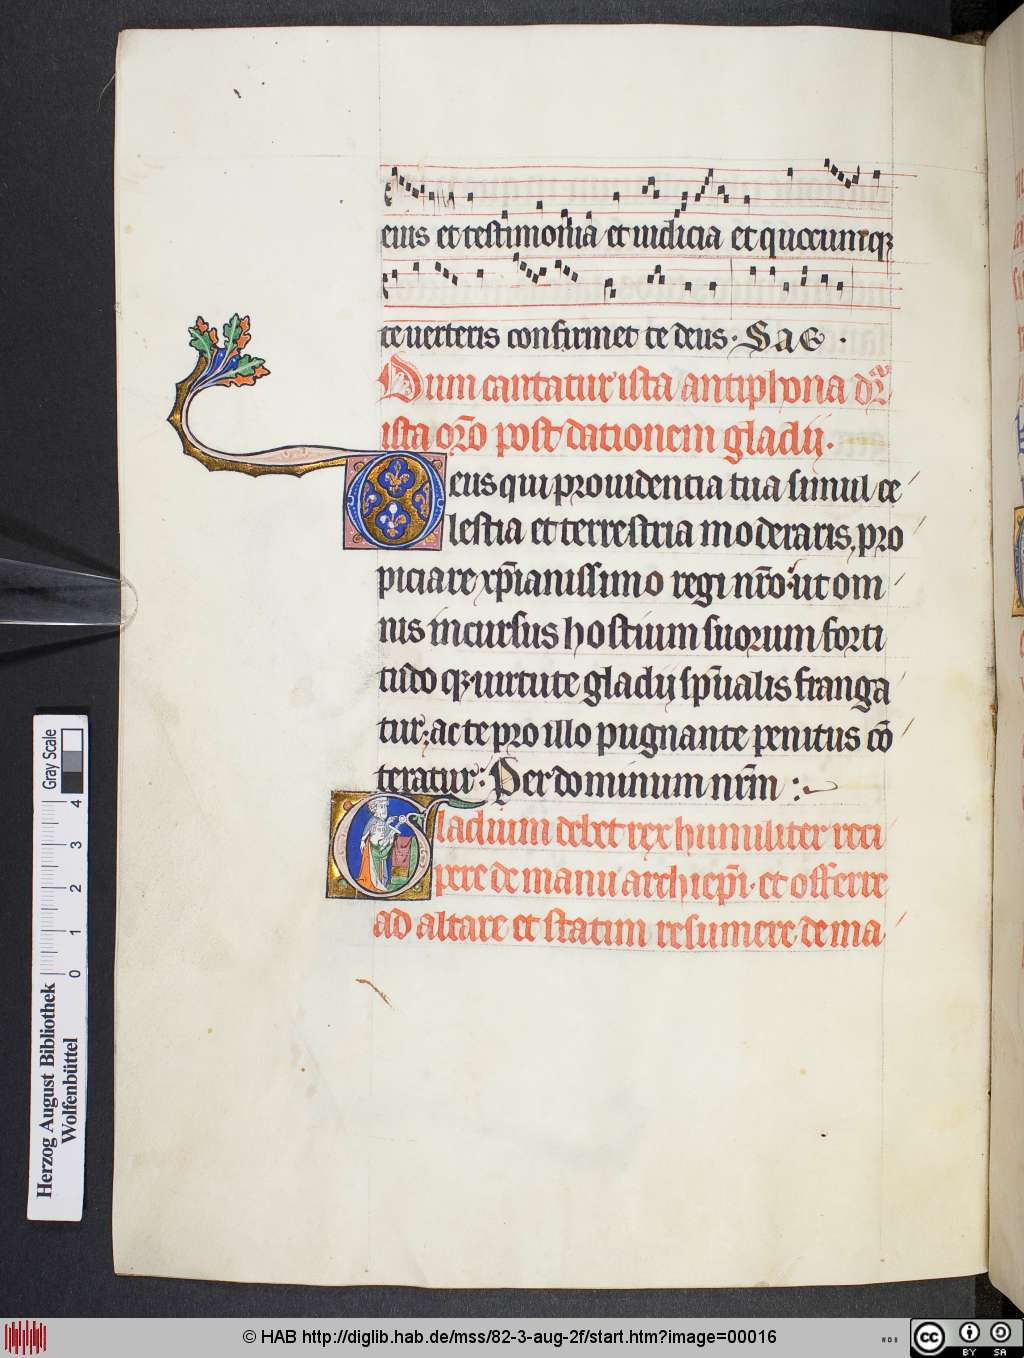 eius et testimonia et iudicia et quocumq;
te uerteris confirmet te deus. S a e .
Dum cantatur ista antiphona dr̄
ista or̄o post dationem gladij.
Deus qui prouidentia tua simul ce
lestia et terrestria moderaris, pro
piciare xp̄ianissimo regi nr̄o. ut om
nis incursus hostium suorum forti
tudo q; uirtute gladij sp̄ualis franga
tur, ac te pro illo pugnante penitus cō
teratur. Per dominum nr̄m :
Gladium debet rex humiliter reci
pere de manu archiep̄i. et offerre
ad altare et statim resumere de ma
Gray Scale
4 3 2 1 0
Herzog August Bibliothek
Wolfenbüttel
© HAB http://diglib.hab.de/mss/82-3-aug-2f/start.htm?image=00016
WDB
cc
BY SA